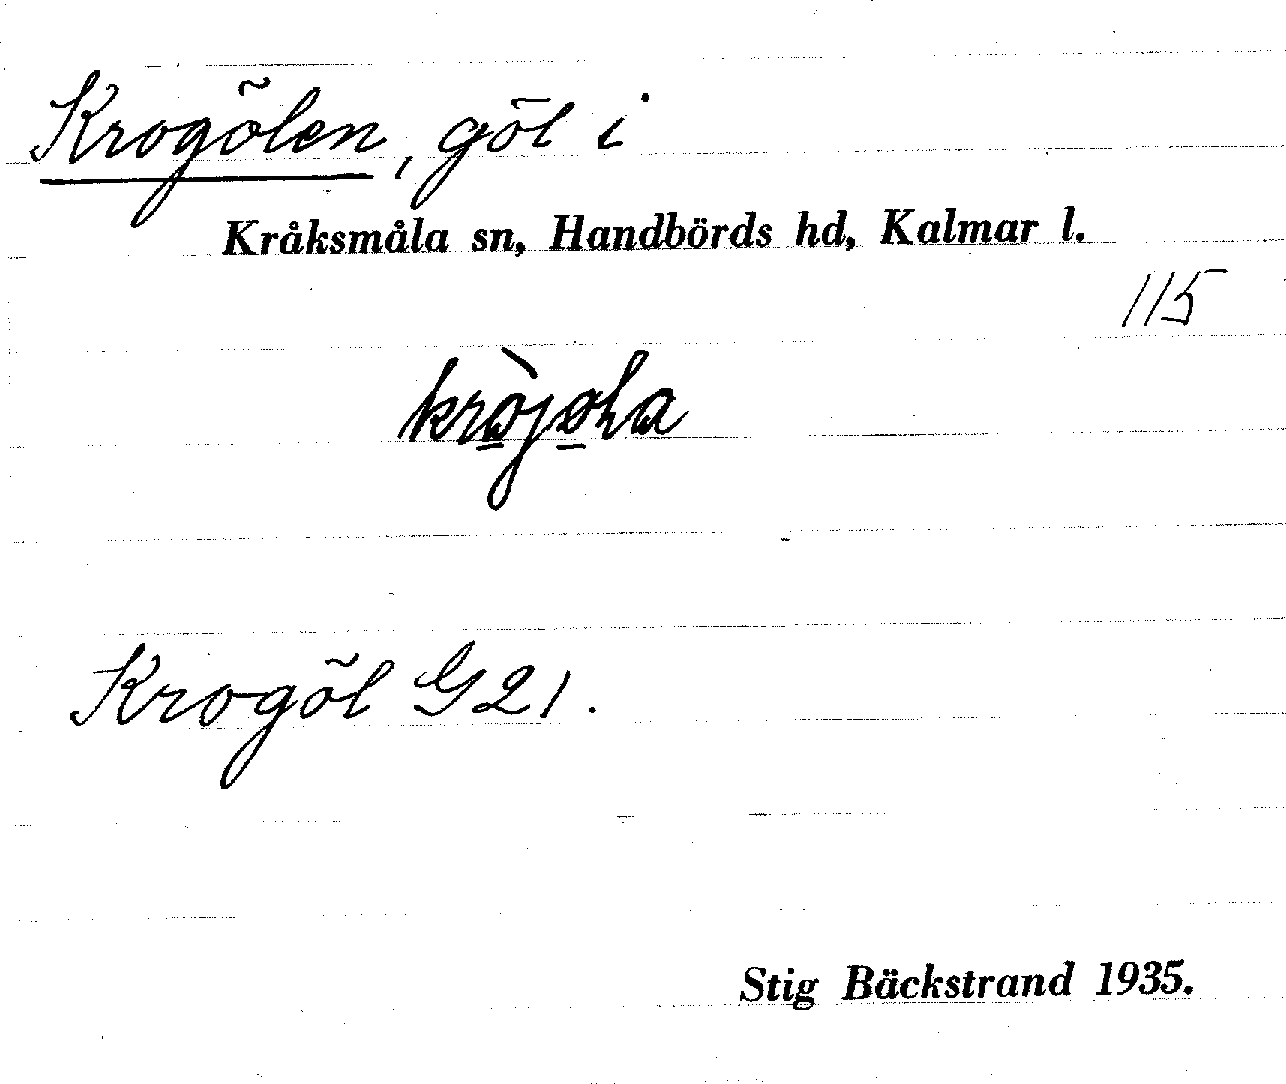 Krogölen, göl i
Kråksmåla sn, Handbörds hd, Kalmar l.
115
Krogöl G21.
Stig Bäckstrand 1935.